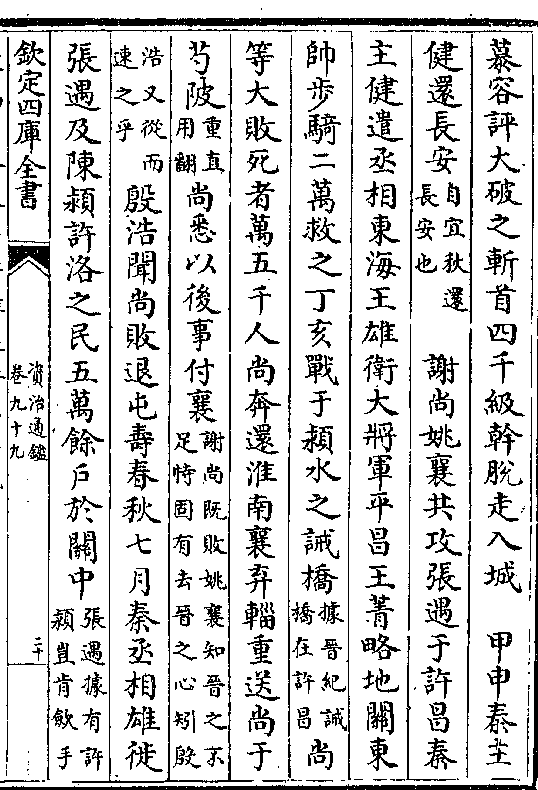 慕容評大破之斬首四千級幹脫走入城　甲申秦主
健還長安自宜秋還長安也　謝尚姚襄共攻張遇于許昌秦
主健遣丞相東海王雄衛大將軍平昌王菁略地關東
帥步騎二萬救之丁亥戰于潁水之誡橋據晉紀誡橋在許昌尚
等大敗死者萬五千人尚奔還淮南襄弃輜重送尚于
芍陂重直用翻尚悉以後事付襄謝尚既敗姚襄知晉之不足恃固有去晉之心矧殷
浩又從而速之乎殷浩聞尚敗退屯壽春秋七月秦丞相雄徙
張遇及陳潁許洛之民五萬餘戶於關中張遇據有許潁豈肯斂手
欽定四庫全書
資治通鑑
卷九十九
二十